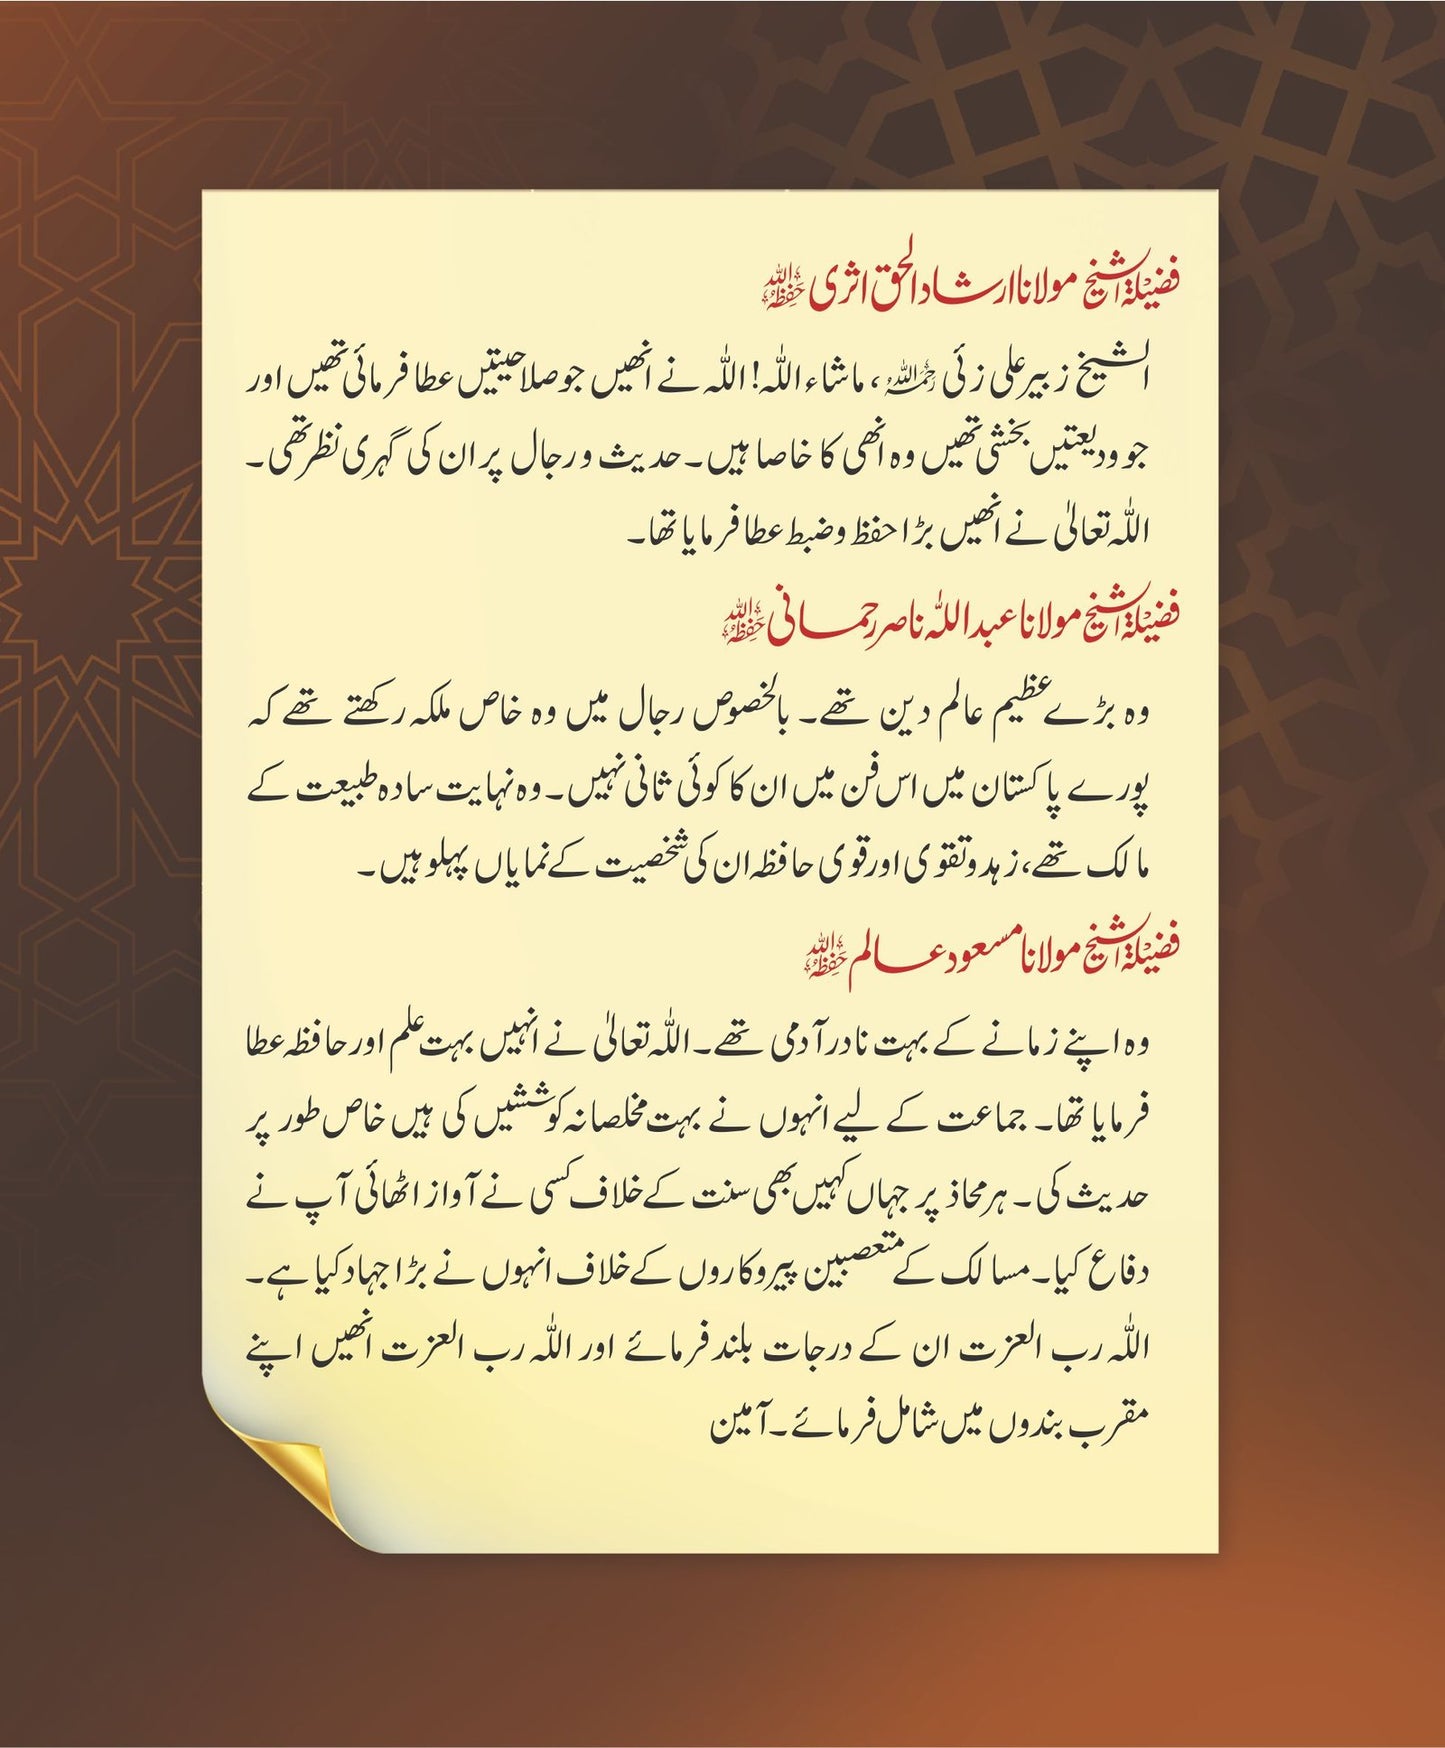 فضیلۃ الشیخ مولانا ارشاد الحق اثری حفظہ اللہ
الشیخ زبیر علی زئی رحمہ اللہ، ماشاء اللہ! اللہ نے انھیں جو صلاحیتیں عطا فرمائی تھیں اور
جو ودیعتیں بخشی تھیں وہ انھی کا خاصا ہیں۔ حدیث و رجال پر ان کی گہری نظر تھی۔
اللہ تعالیٰ نے انھیں بڑا حفظ و ضبط عطا فرمایا تھا۔
فضیلۃ الشیخ مولانا عبداللہ ناصر رحمانی حفظہ اللہ
وہ بڑے عظیم عالم دین تھے۔ بالخصوص رجال میں وہ خاص ملکہ رکھتے تھے کہ
پورے پاکستان میں اس فن میں ان کا کوئی ثانی نہیں۔ وہ نہایت سادہ طبیعت کے
مالک تھے، زہد و تقوی اور قوی حافظہ ان کی شخصیت کے نمایاں پہلو ہیں۔
فضیلۃ الشیخ مولانا مسعود عالم حفظہ اللہ
وہ اپنے زمانے کے بہت نادر آدمی تھے۔ اللہ تعالیٰ نے انہیں بہت علم اور حافظہ عطا
فرمایا تھا۔ جماعت کے لیے انہوں نے بہت مخلصانہ کوششیں کی ہیں خاص طور پر
حدیث کی۔ ہر محاذ پر جہاں کہیں بھی سنت کے خلاف کسی نے آواز اٹھائی آپ نے
دفاع کیا۔ مسالک کے متعصبین پیروکاروں کے خلاف انہوں نے بڑا جہاد کیا ہے۔
اللہ رب العزت ان کے درجات بلند فرمائے اور اللہ رب العزت انھیں اپنے
مقرب بندوں میں شامل فرمائے۔ آمین